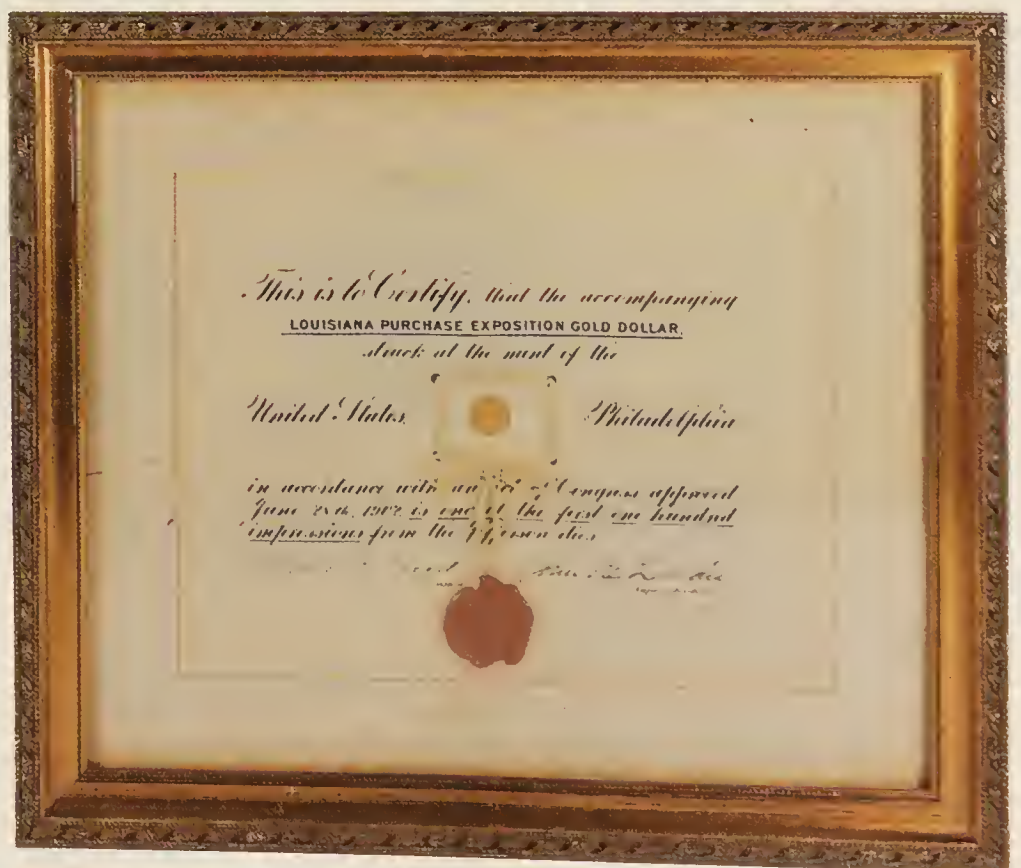 This is to Certify, that the accompanying
LOUISIANA PURCHASE EXPOSITION GOLD DOLLAR,
struck at the mint of the
United States Philadelphia
in accordance with an Act of Congress approved
June 28th, 1902 is one of the first one hundred
impressions from the Jefferson dies